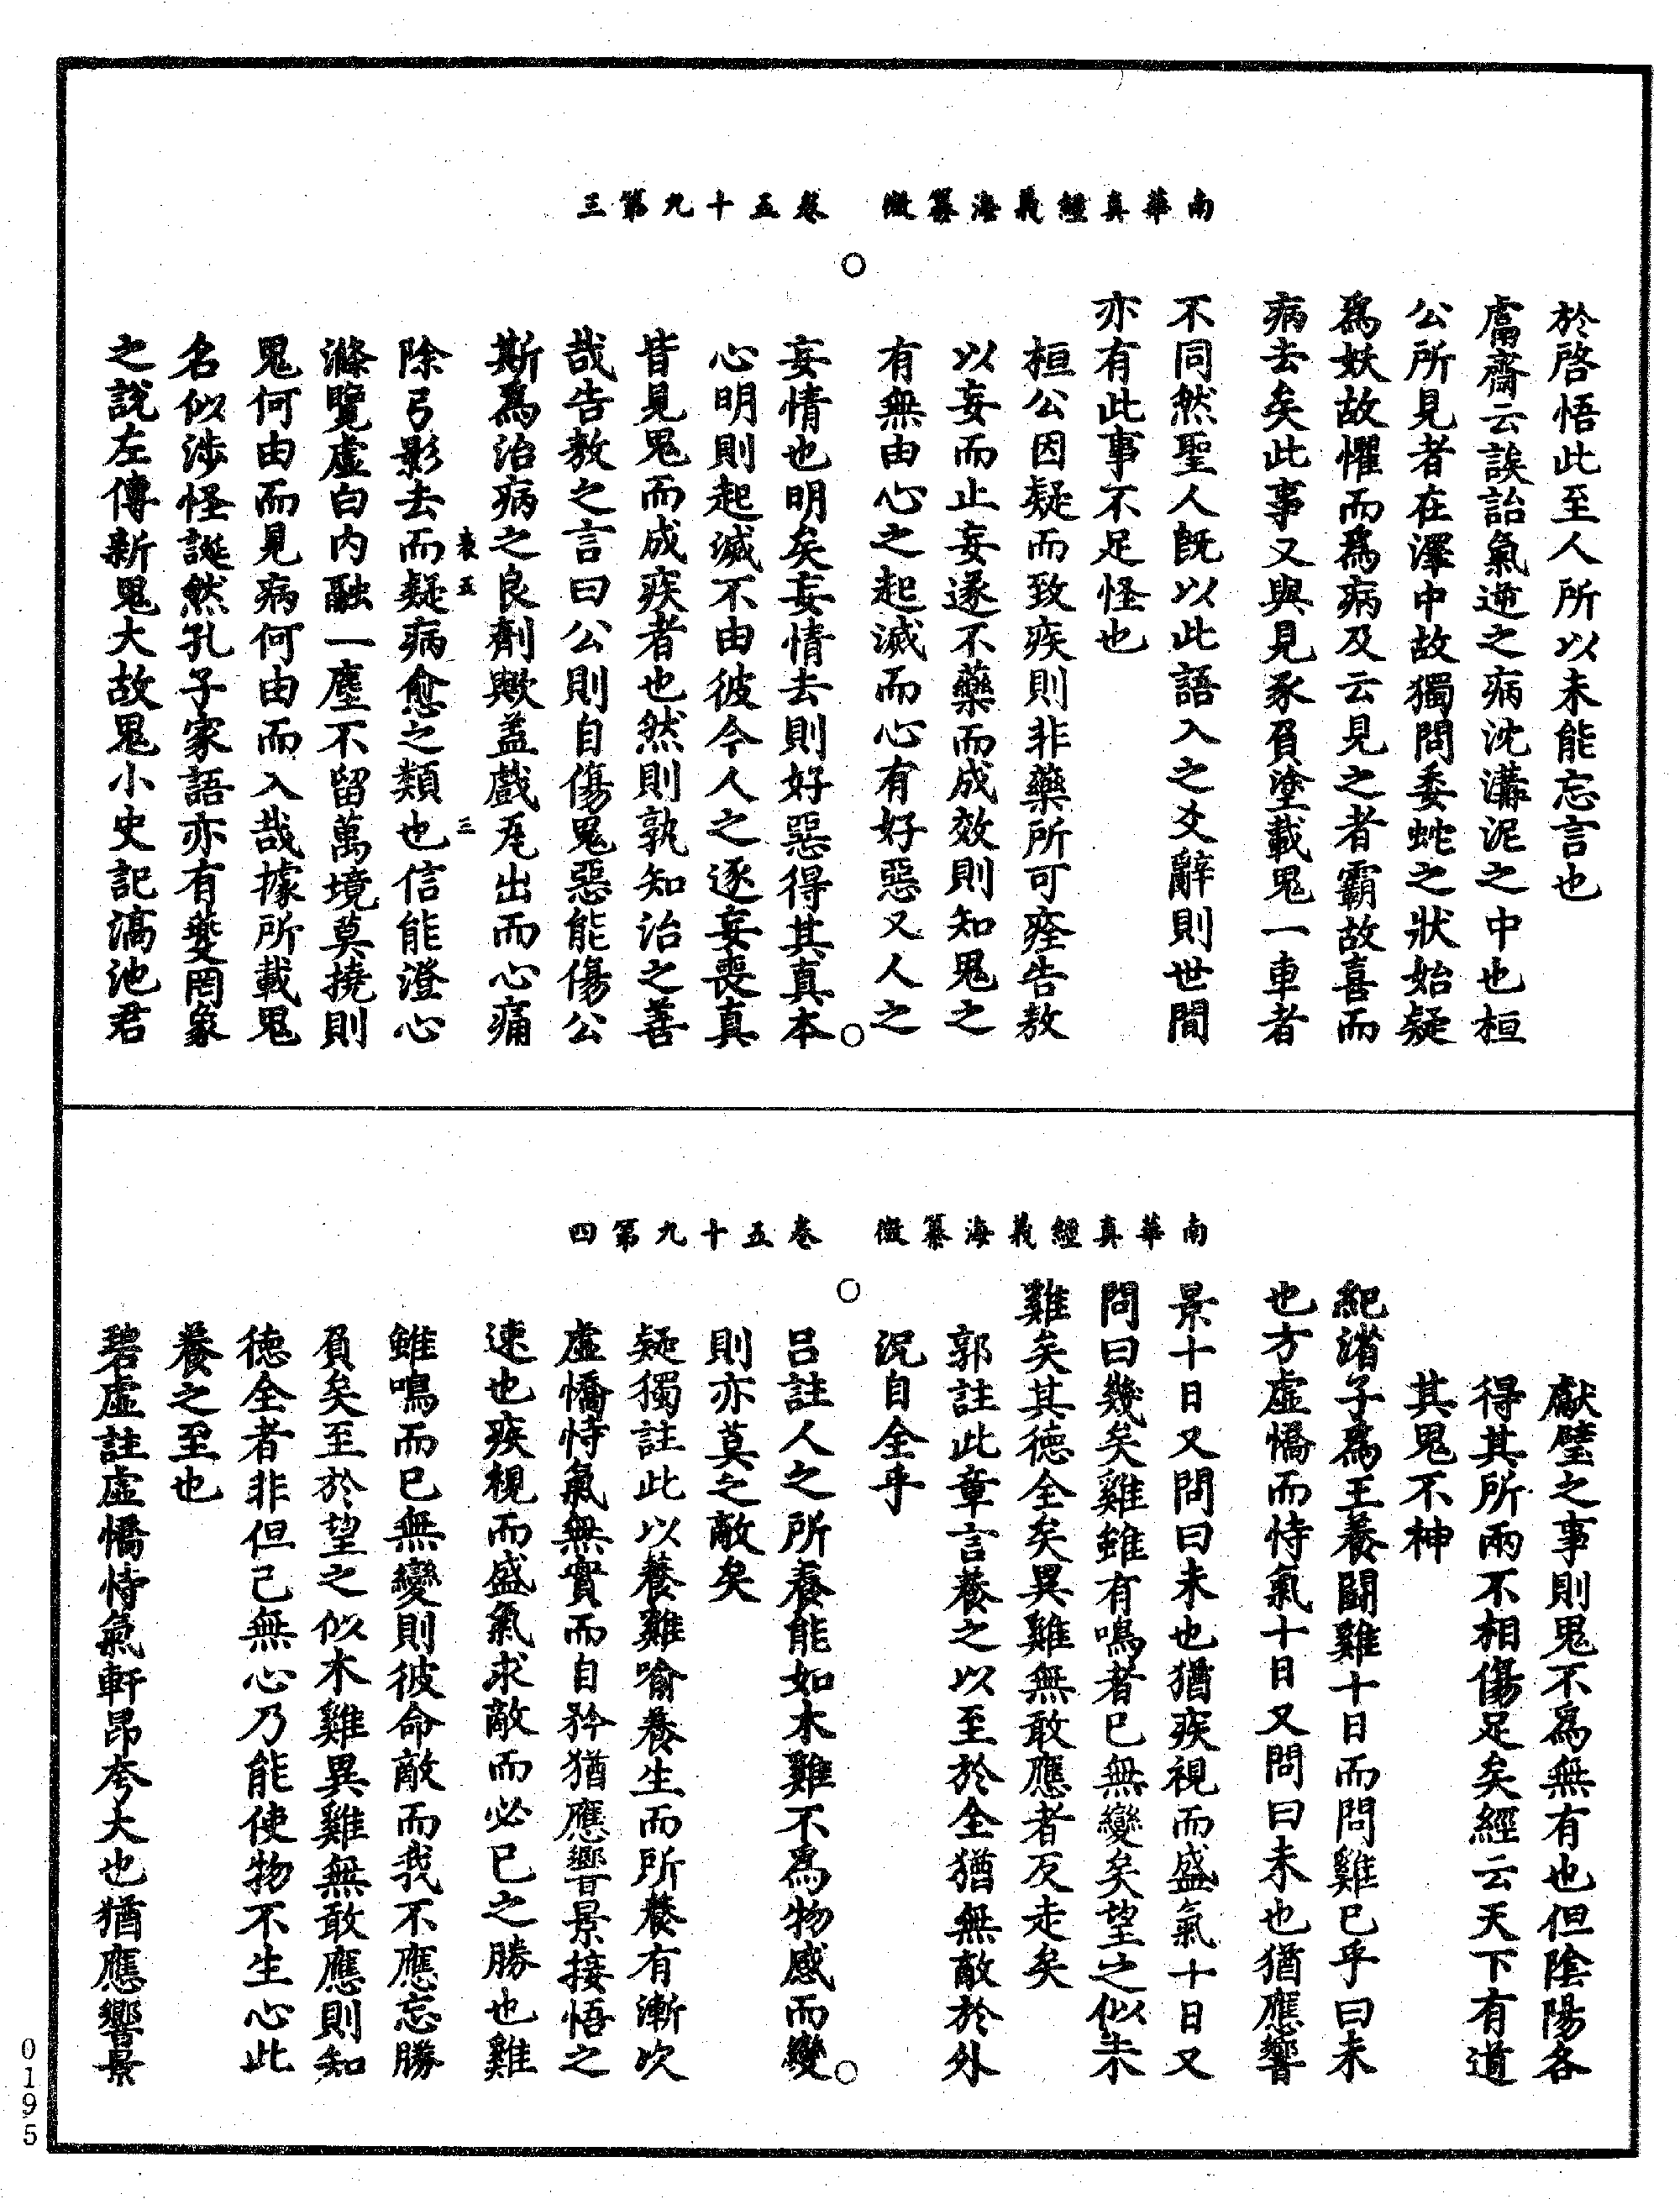 南華真經義海纂微　卷五十九第三
於啓悟此至人所以未能忘言也
鬳齋云誒詒氣逆之病沈溝泥之中也桓
公所見者在澤中故獨問委蛇之狀始疑
爲妖故懼而爲病及云見之者霸故喜而
病去矣此事又與見豕負塗載鬼一車者
不同然聖人既以此語入之爻辭則世間
亦有此事不足怪也
桓公因疑而致疾則非藥所可痊告敖
以妄而止妄遂不藥而成效則知鬼之
有無由心之起滅而心有好惡又人之
妄情也明矣妄情去則好惡得其真本
心明則起滅不由彼今人之逐妄喪真
皆見鬼而成疾者也然則孰知治之善
哉告敖之言曰公則自傷鬼惡能傷公
斯爲治病之良劑歟盖戲𤬪出而心痛
表五　三
除弓影去而疑病愈之類也信能澄心
滌覽虛白內融一塵不留萬境莫撓則
鬼何由而見病何由而入哉據所載鬼
名似涉怪誕然孔子家語亦有夔罔象
之說左傳新鬼大故鬼小史記滈池君
南華真經義海纂微　卷五十九第四
獻璧之事則鬼不爲無有也但陰陽各
得其所兩不相傷足矣經云天下有道
其鬼不神
紀渻子爲王養鬭雞十日而問雞已乎曰未
也方虛憍而恃氣十日又問曰未也猶應響
景十日又問曰未也猶疾視而盛氣十日又
問曰幾矣雞雖有鳴者已無變矣望之似木
雞矣其德全矣異雞無敢應者反走矣
郭註此章言養之以至於全猶無敵於外
況自全乎
吕註人之所養能如木雞不爲物感而變
則亦莫之敵矣
疑獨註此以養雞喻養生而所養有漸次
虛憍恃氣無實而自矜猶應響景接悟之
速也疾視而盛氣求敵而必已之勝也雞
雖鳴而已無變則彼命敵而我不應忘勝
負矣至於望之似木雞異雞無敢應則知
德全者非但己無心乃能使物不生心此
養之至也
碧虛註虛憍恃氣軒昂夸大也猶應響景
0195